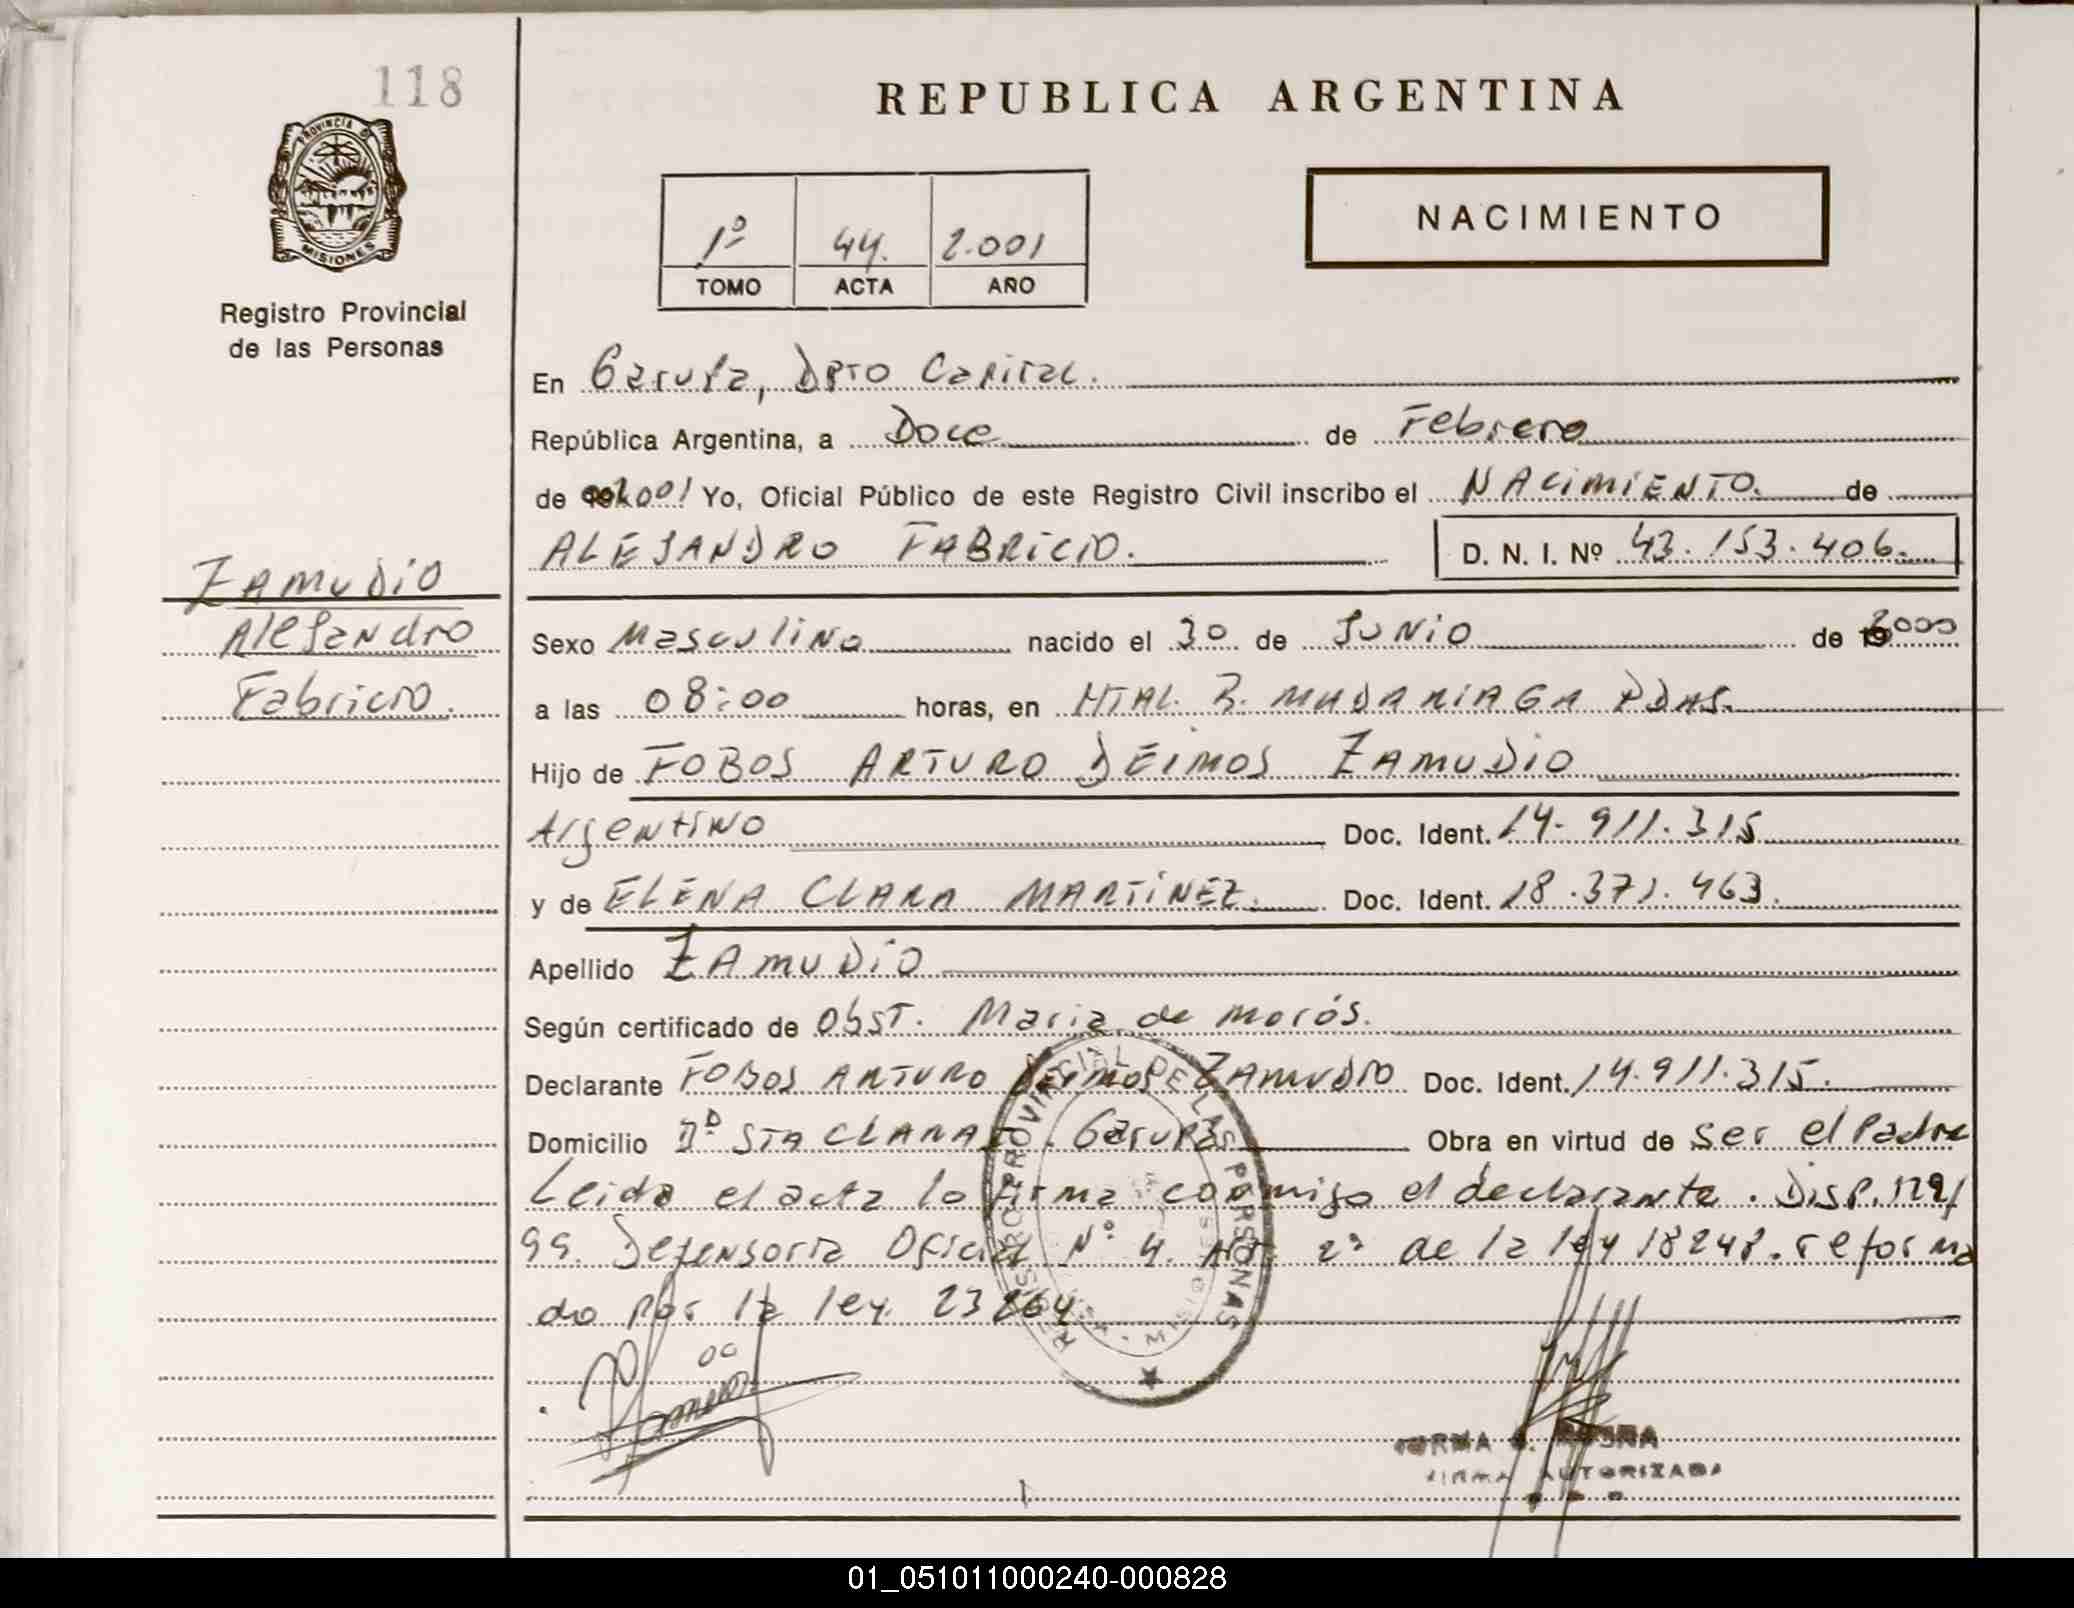 118
REPUBLICA ARGENTINA
PROVINCIA DE
MISIONES
NACIMIENTO
1º 44. 2.001
TOMO ACTA AÑO
Registro Provincial
de las Personas
En Garupa, Dpto Capital.
República Argentina, a Doce de Febrero
de 2001 Yo, Oficial Público de este Registro Civil inscribo el NACIMIENTO. de
ALEJANDRO FABRICIO. D. N. I. Nº 43.153.406.
ZAMUDIO
Alejandro
Fabricio.
Sexo Masculino nacido el 30 de JUNIO de 2000
a las 08:00 horas, en HTAL. R. MADARIAGA PDAS.
Hijo de FOBOS ARTURO DEIMOS ZAMUDIO
Argentino Doc. Ident. 14.911.315
y de ELENA CLARA MARTINEZ. Doc. Ident. 18.371.463.
Apellido ZAMUDIO
Según certificado de Obst. Maria de Morós.
Declarante FOBOS ARTURO DEIMOS ZAMUDIO Doc. Ident. 14.911.315.
Domicilio Bº STA CLARA I. Garupa Obra en virtud de ser el Padre
Leida el acta la firma conmigo el declarante. Disp. 129/
99. Defensoria Oficial Nº 4. Art. 2º de la ley 18248. reforma
do por la ley. 23264
REGISTRO PROVINCIAL DE LAS PERSONAS
MISIONES
NORMA
FIRMA AUTORIZADA
01_051011000240-000828